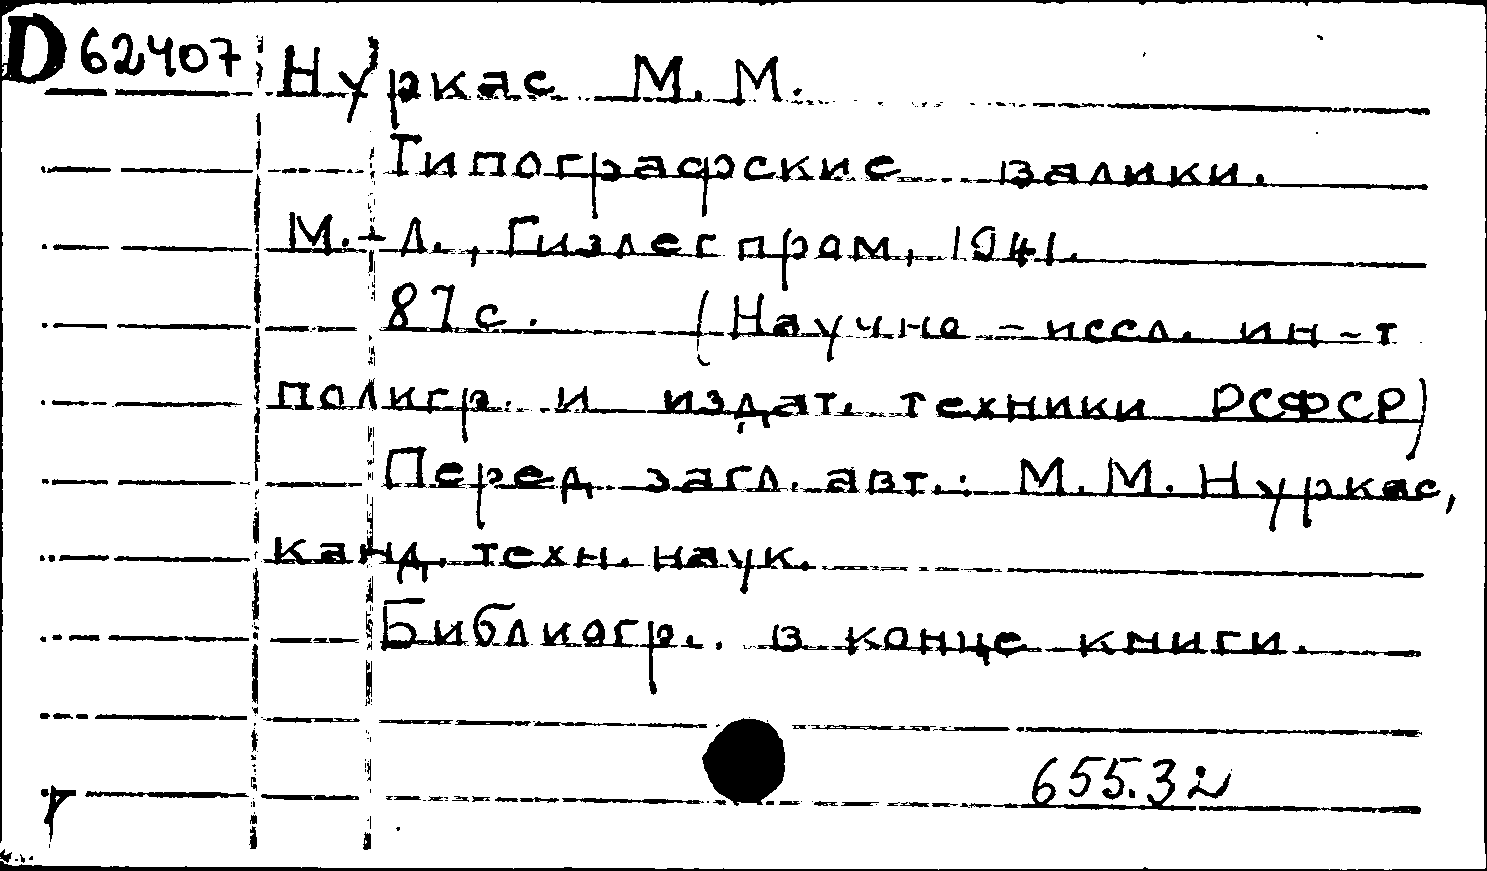 D 62407 Нуркас М. М.
Типографские валики.
М.-Л., Гизлегпром, 1941.
87 с. (Научно-иссл. ин-т
полигр. и издат. техники РСФСР)
Перед загл. авт.: М. М. Нуркас,
канд. техн. наук.
Библиогр. в конце книги.
655.32
г